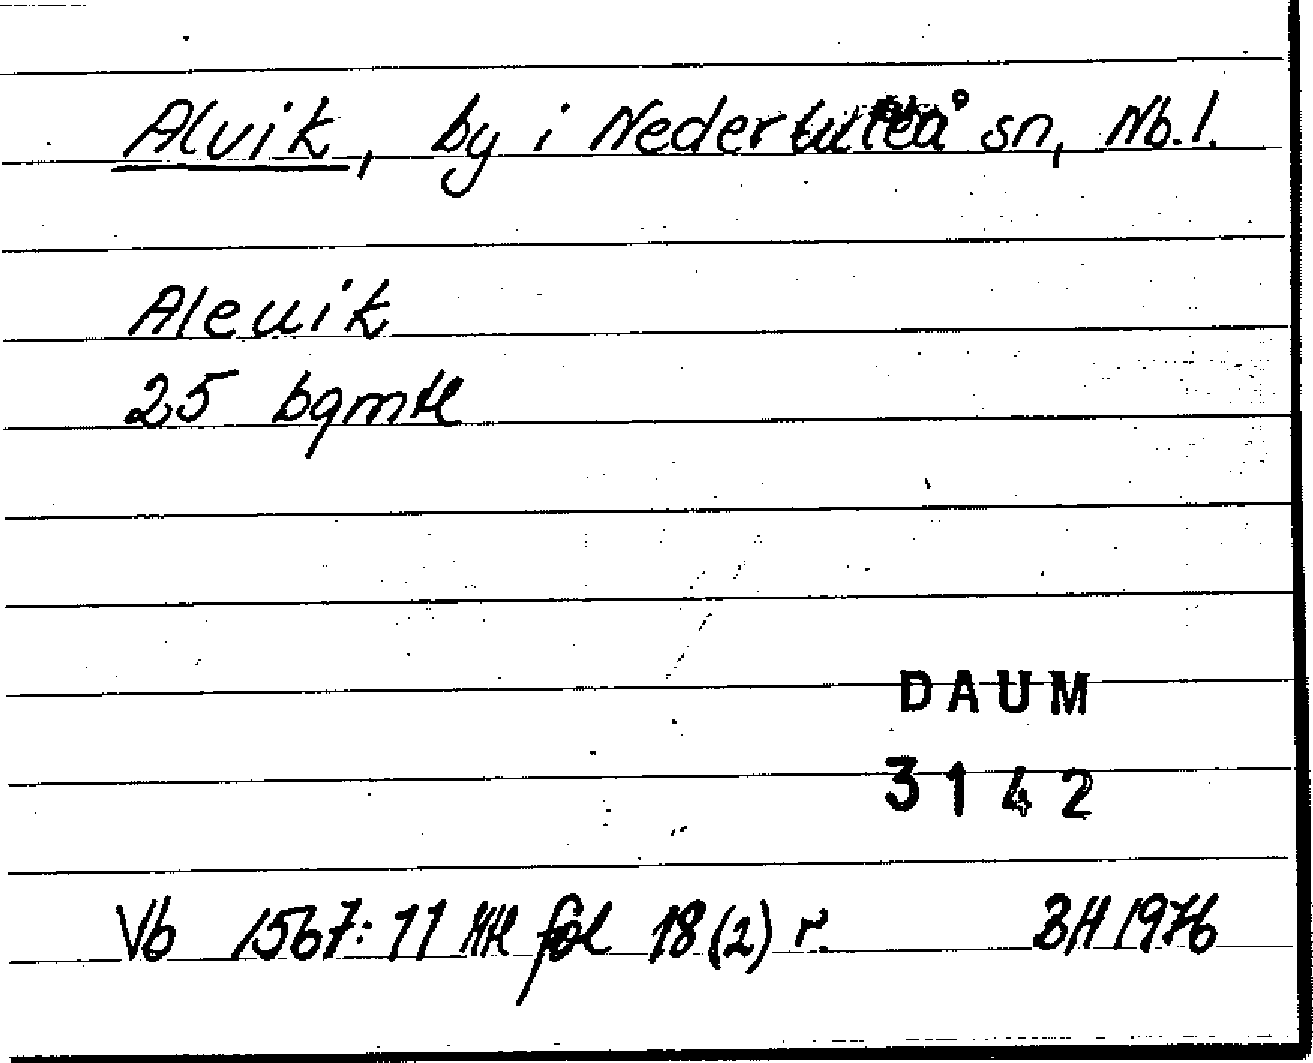 Alvik, by i Nederluleå sn, Nb.l.
Aleuik
25 bgmtl
DAUM
3142
Vb 1567:11 HH fol 18(2) r. BH 1976